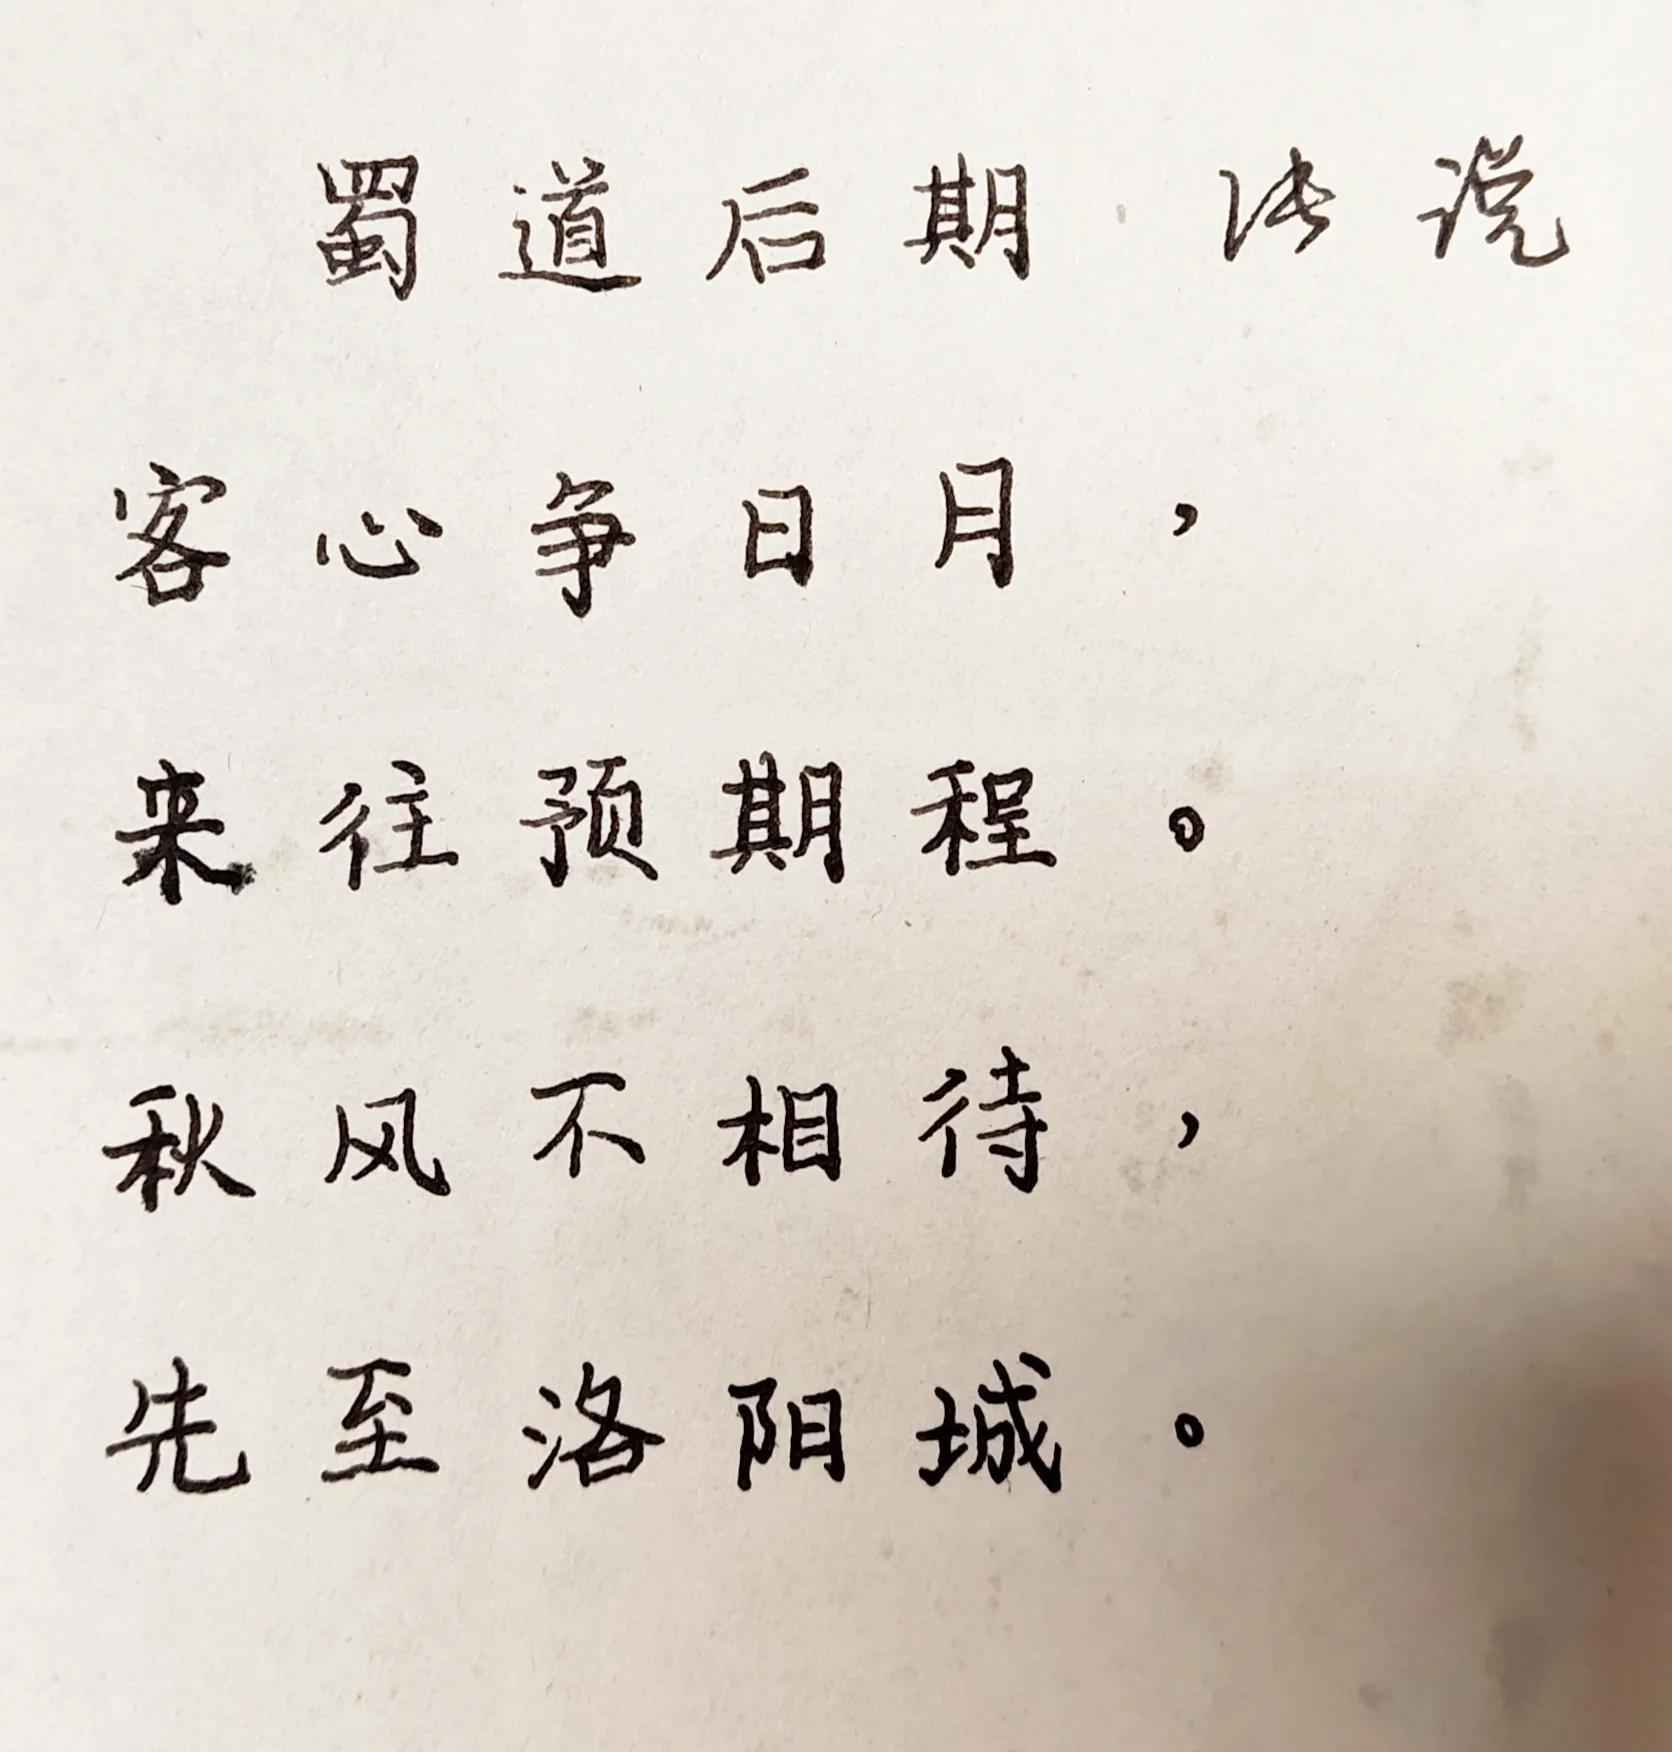 蜀道后期 张说
客心争日月，
来往预期程。
秋风不相待，
先至洛阳城。